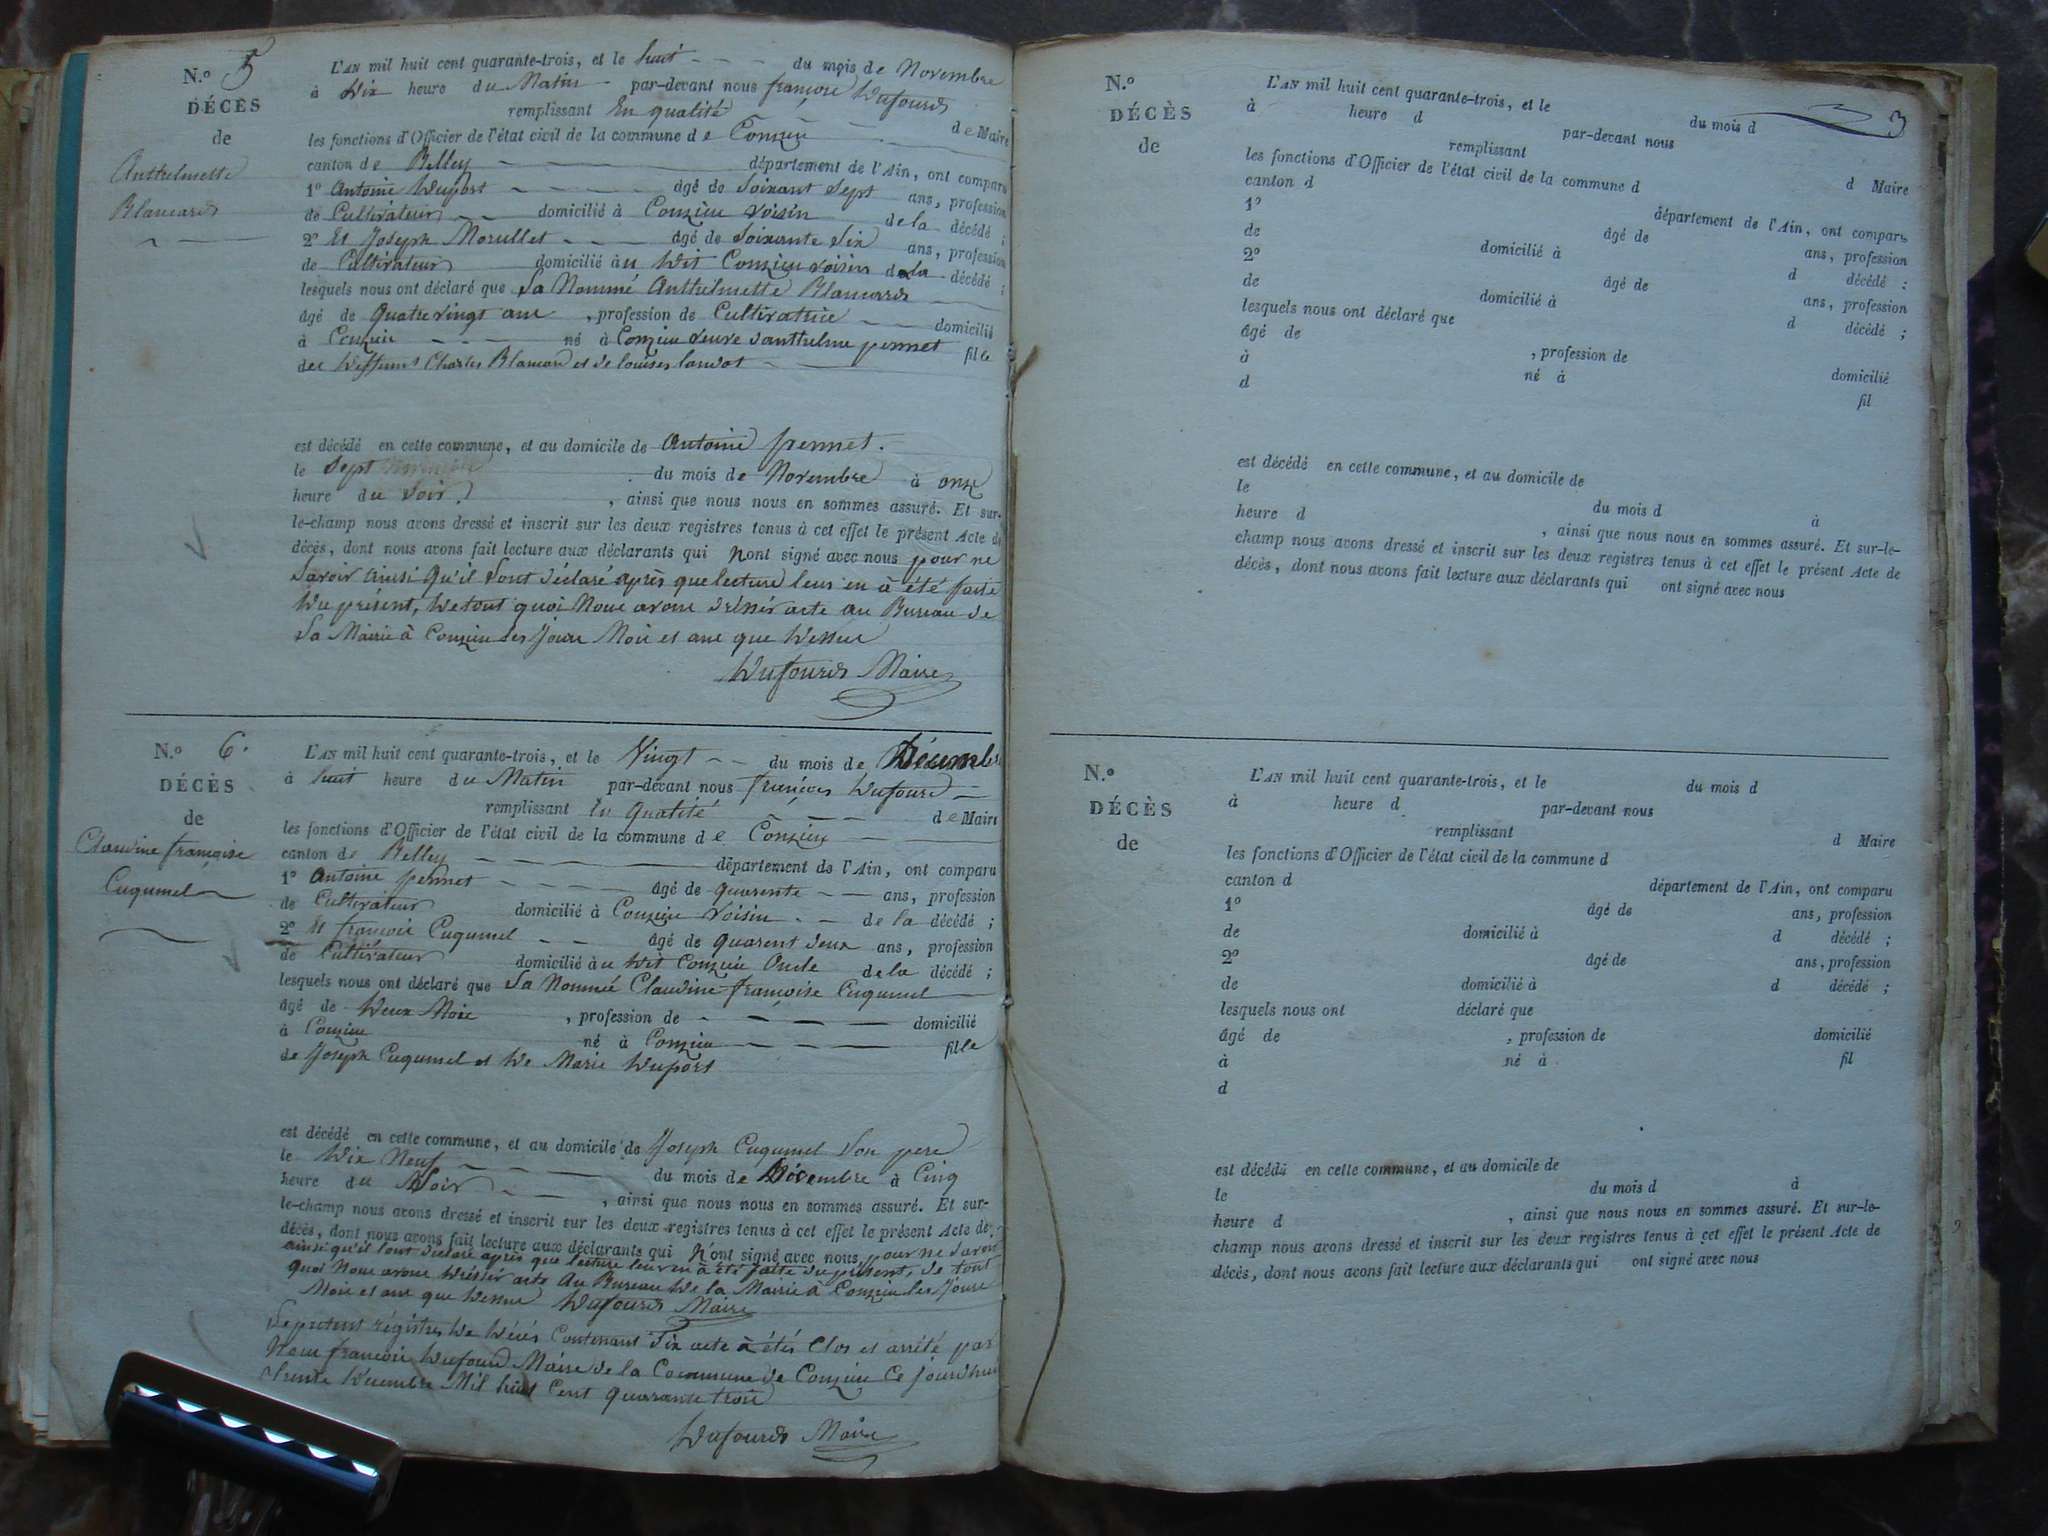 N.o 5
DÉCÈS
de
Anthelmette
Blancard
L'AN mil huit cent quarante-trois, et le huit du mois de Novembre
à Dix heure du Matin par-devant nous françois Dufourd
remplissant En qualité de Maire
les fonctions d'Officier de l'état civil de la commune de Conzieu
canton de Belley département de l'Ain, ont comparu
1o Antoine Duport âgé de Soixant Sept ans, profession
de Cultivateur domicilié à Conzieu voisin de la décédé ;
2o Et Joseph Morullet âgé de Soixante Six ans, profession
de Cultivateur domicilié au dit Conzieu voisin de la décédé ;
lesquels nous ont déclaré que La Nommé Anthelmette Blancard
âgé de Quatrevingt ans , profession de Cultivatrice domicilié
à Conzieu né à Conzieu veuve d'anthelme pennet fille
des Deffunt Charles Blancard et de louise
est décédé en cette commune, et au domicile de Antoine pennet.
le Sept du mois de Novembre à onze
heure du Soir , ainsi que nous nous en sommes assuré. Et sur-
le-champ nous avons dressé et inscrit sur les deux registres tenus à cet effet le présent Acte de
décès, dont nous avons fait lecture aux déclarants qui nont signé avec nous pour ne
Savoir ainsi Qu'il Lont déclaré après que lecture leur en à été faite
Du présent, De tout quoi Nous avons dréssér acte au Bureau de
La Mairie à Conzieu les Jours Mois et ans que Dessus
Dufourd Maire
N.o 6.
DÉCÈS
de
Claudine françoise
Cuqumel
L'AN mil huit cent quarante-trois, et le Vingt du mois de Décembre
à huit heure du Matin par-devant nous françois Dufourd
remplissant En Qualité de Maire
les fonctions d'Officier de l'état civil de la commune de Conzieu
canton de Belley département de l'Ain, ont comparu
1o Antoine pennet âgé de quarente ans, profession
de Cultivateur domicilié à Conzieu voisin de la décédé ;
2o Et françois Cuqumel âgé de quarent deux ans, profession
de Cultivateur domicilié au dit Conzieu Oncle de la décédé ;
lesquels nous ont déclaré que La Nommée Claudine françoise Cuqumel
âgé de Deux Mois , profession de domicilié
à Conzieu né à Conzieu fille
de Joseph Cuqumel et De Marie Duport
est décédé en cette commune, et au domicile de Joseph Cuqumel Son pere
le Dix Neuf du mois de Décembre à Cinq
heure du Soir , ainsi que nous nous en sommes assuré. Et sur-
le-champ nous avons dressé et inscrit sur les deux registres tenus à cet effet le présent Acte de
décès, dont nous avons fait lecture aux déclarants qui n'ont signé avec nous pour ne Savoir
ainsi qu'il Lont déclaré après que lecture leur en à été faite du présent, de tout
quoi Nous avons Dréssér acte Au Bureau De la Mairie à Conzieu les Jours
Mois et ans que Dessus Dufourd Maire
Le présent régistres De Décés Contenant Six acte à étés Clos et arrêté par
Nous françois Dufourd Maire de la Commune de Conzieu Ce jourdhui
trente Décembre Mil huit Cent Quarante trois
Dufourd Maire
3
N.o
DÉCÈS
de
L'AN mil huit cent quarante-trois, et le du mois d
à heure d par-devant nous
remplissant d Maire
les fonctions d'Officier de l'état civil de la commune d
canton d département de l'Ain, ont comparu
1o âgé de ans, profession
de domicilié à d décédé ;
2o âgé de ans, profession
de domicilié à d décédé ;
lesquels nous ont déclaré que
âgé de , profession de domicilié
à né à fil
d
est décédé en cette commune, et au domicile de
le du mois d à
heure d , ainsi que nous nous en sommes assuré. Et sur-le-
champ nous avons dressé et inscrit sur les deux registres tenus à cet effet le présent Acte de
décès, dont nous avons fait lecture aux déclarants qui ont signé avec nous
N.o
DÉCÈS
de
L'AN mil huit cent quarante-trois, et le du mois d
à heure d par-devant nous
remplissant d Maire
les fonctions d'Officier de l'état civil de la commune d
canton d département de l'Ain, ont comparu
1o âgé de ans, profession
de domicilié à d décédé ;
2o âgé de ans, profession
de domicilié à d décédé ;
lesquels nous ont déclaré que
âgé de , profession de domicilié
à né à fil
d
est décédé en cette commune, et au domicile de
le du mois d à
heure d , ainsi que nous nous en sommes assuré. Et sur-le-
champ nous avons dressé et inscrit sur les deux registres tenus à cet effet le présent Acte de
décès, dont nous avons fait lecture aux déclarants qui ont signé avec nous